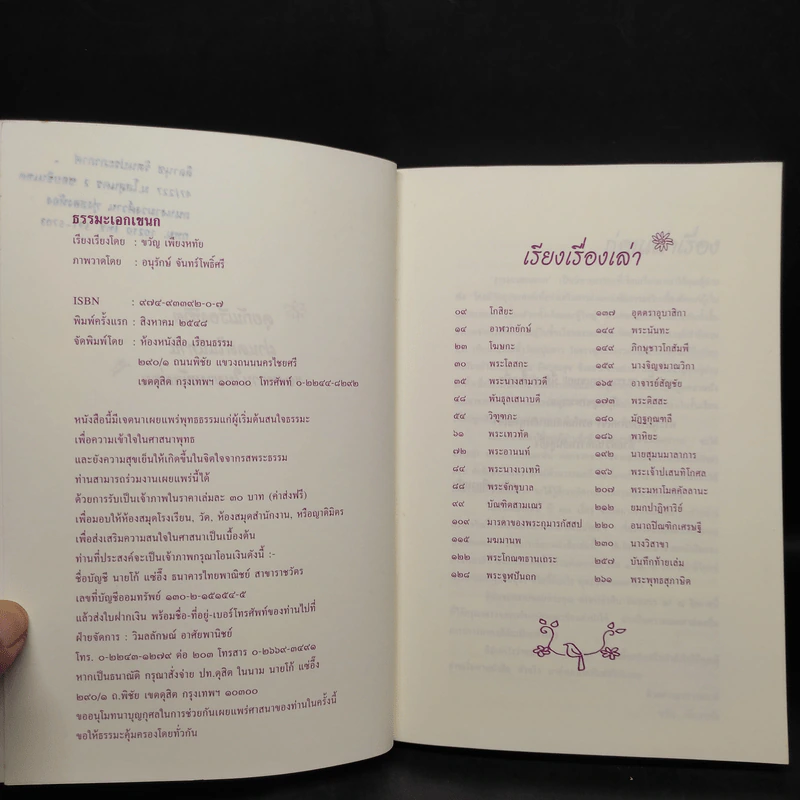 ธรรมะเอกเขนก
เรียบเรียงโดย : ขวัญ เพียงหทัย
ภาพวาดโดย : อนุรักษ์ จันทร์โพธิ์ศรี
ISBN : ๙๗๔-๙๓๓๙๒-๐-๗
พิมพ์ครั้งแรก : สิงหาคม ๒๕๔๘
จัดพิมพ์โดย : ห้องหนังสือ เรือนธรรม
๒๙๐/๑ ถนนพิชัย แขวงถนนนครไชยศรี
เขตดุสิต กรุงเทพฯ ๑๐๓๐๐ โทรศัพท์ ๐-๒๒๔๔-๘๒๙๒
หนังสือนี้มีเจตนาเผยแพร่พุทธธรรมแก่ผู้เริ่มต้นสนใจธรรมะ
เพื่อความเข้าใจในศาสนาพุทธ
และยังความสุขเย็นให้เกิดขึ้นในจิตใจจากรสพระธรรม
ท่านสามารถร่วมงานเผยแพร่นี้ได้
ด้วยการรับเป็นเจ้าภาพในราคาเล่มละ ๓๐ บาท (ค่าส่งฟรี)
เพื่อมอบให้ห้องสมุดโรงเรียน, วัด, ห้องสมุดสำนักงาน, หรือญาติมิตร
เพื่อส่งเสริมความสนใจในศาสนาเป็นเบื้องต้น
ท่านที่ประสงค์จะเป็นเจ้าภาพกรุณาโอนเงินดังนี้ :-
ชื่อบัญชี นายโก้ แซ่อึ๊ง ธนาคารไทยพาณิชย์ สาขาราชวัตร
เลขที่บัญชีออมทรัพย์ ๑๓๐-๒-๑๕๑๕๔-๕
แล้วส่งใบฝากเงิน พร้อมชื่อ-ที่อยู่-เบอร์โทรศัพท์ของท่านไปที่
ฝ่ายจัดการ : วิมลลักษณ์ อาศัยพานิชย์
โทร. ๐-๒๒๔๓-๑๒๗๙ ต่อ ๒๐๓ โทรสาร ๐-๒๖๖๙-๓๔๙๑
หากเป็นธนาณัติ กรุณาสั่งจ่าย ปท.ดุสิต ในนาม นายโก้ แซ่อึ๊ง
๒๙๐/๑ ถ.พิชัย เขตดุสิต กรุงเทพฯ ๑๐๓๐๐
ขออนุโมทนาบุญกุศลในการช่วยกันเผยแพร่ศาสนาของท่านในครั้งนี้
ขอให้ธรรมะคุ้มครองโดยทั่วกัน
เรียงเรื่องเล่า
๐๙ โกสิยะ
๑๔ อาฬวกยักษ์
๒๓ โฆษกะ
๓๐ พระโสสกะ
๓๕ พระนางสามาวดี
๔๘ พันธุลเสนาบดี
๕๔ วิฑูฑภะ
๖๑ พระเทวทัต
๗๒ พระอานนท์
๘๔ พระนางเวเทหิ
๘๘ พระจักขุบาล
๙๙ บัณฑิตสามเณร
๑๐๙ มารดาของพระกุมารกัสสป
๑๑๕ มฆมานพ
๑๒๒ พระโกณฑธานเถระ
๑๒๘ พระจูฬปันถก
๑๓๗ อุตตราอุบาสิกา
๑๔๔ พระนันทะ
๑๔๙ ภิกษุชาวโกสัมพี
๑๕๙ นางจิญจมาณวิกา
๑๖๕ อาจารย์สัญชัย
๑๗๓ พระติสสะ
๑๘๐ มัฏฐกุณฑลี
๑๘๖ พาหิยะ
๑๙๒ นายสุมนมาลาการ
๑๙๖ พระเจ้าปเสนทิโกศล
๒๐๗ พระมหาโมคคัลลานะ
๒๑๒ ยมกปาฏิหาริย์
๒๒๐ อนาถปิณฑิกเศรษฐี
๒๓๐ นางวิสาขา
๒๕๗ บันทึกท้ายเล่ม
๒๖๑ พระพุทธสุภาษิต